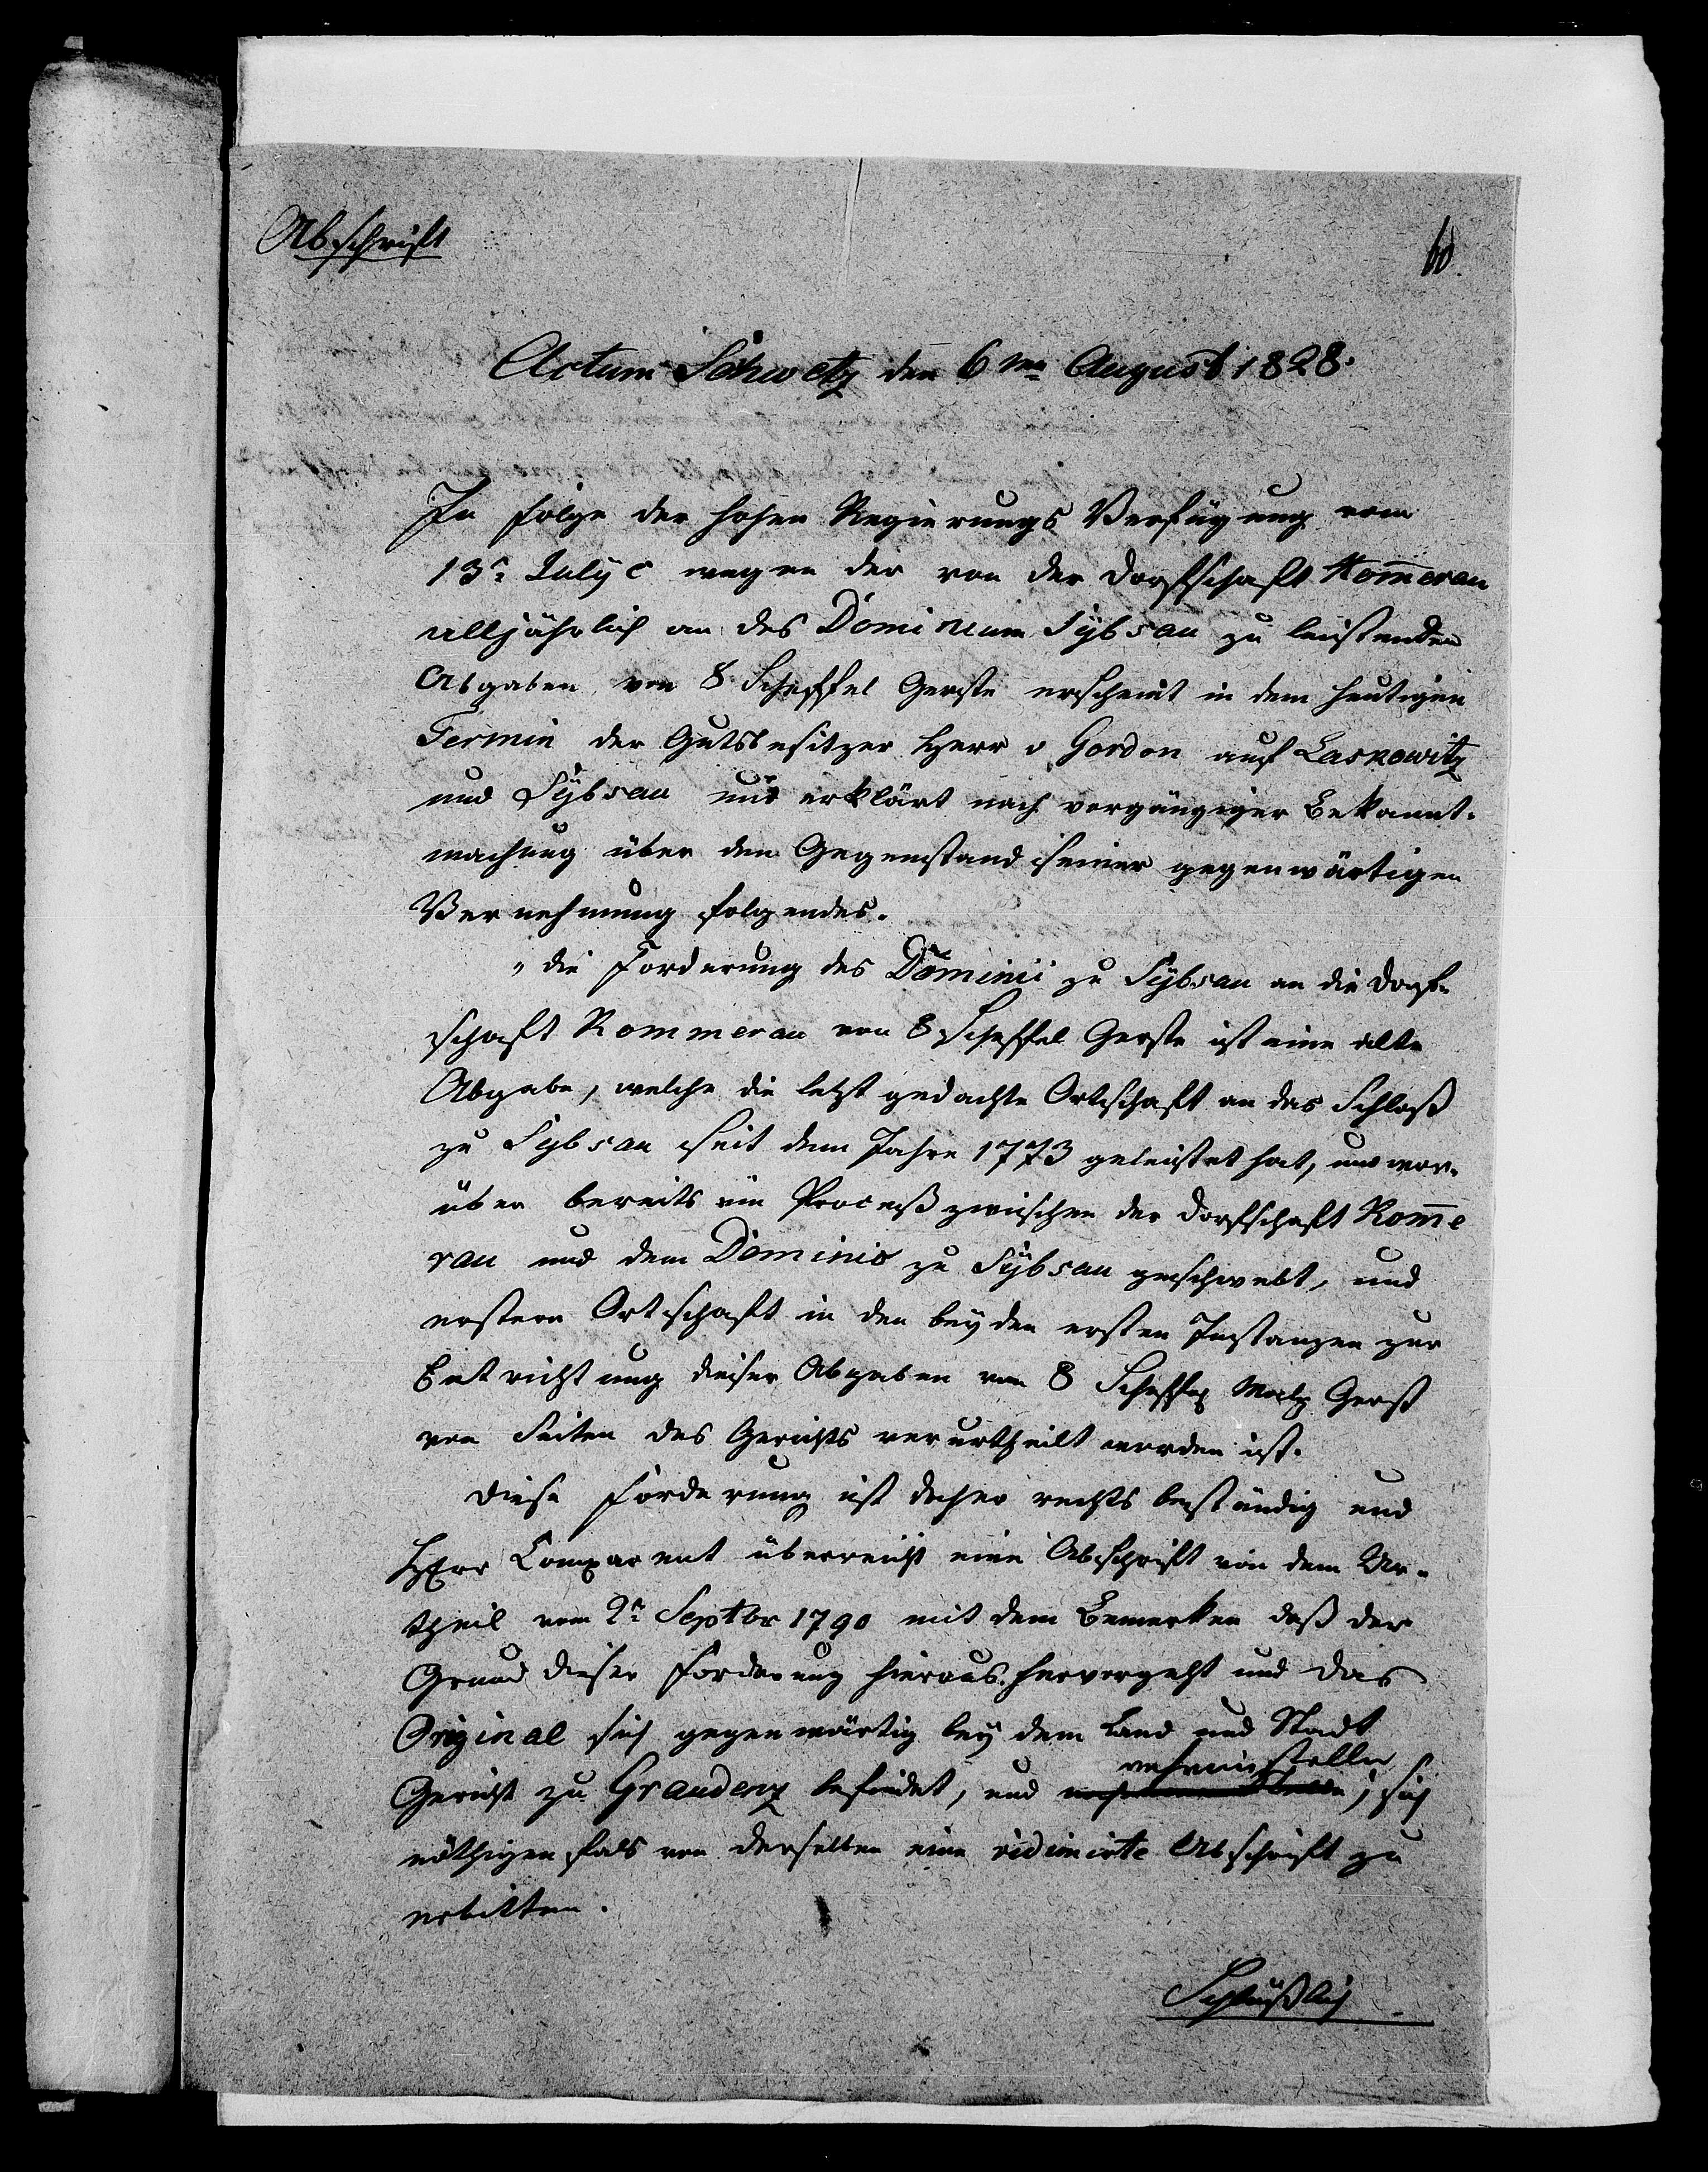 Abschrift
60.
Actum Schwetz den 6ten August 1828.
In folge der hohen Regierungs Verfügung vom
13n July c wegen der von der Dorfschaft Kom̄erau
alljährlich an das Dominium Sybsau zu leistenden
Abgaben von 8 Scheffel Gerste erscheint in dem heutigen
Termin der Gutsbesitzer Herr v Gordon auf Laskowitz
und Sybsau und erklärt nach vorgängiger Bekannt-
machung über den Gegenstand seiner gegenwärtigen
Vernehmung folgendes.
"die Forderung des Dominii zu Sybsau an die Dorf-
schaft Kommerau von 8 Scheffel Gerste ist eine alte
Abgabe, welche die letzt gedachte Ortschaft an das Schloß
zu Sybsau seit dem Jahre 1773 geleistet hat, und wor-
über bereits ein Proceß zwischen der Dorfschaft Kom̄e
rau und dem Dominio zu Sybsau geschwebt, und
erstere Ortschaft in den beyden ersten Instanzen zur
Entrichtung dieser Abgaben von 8 Scheffel Malz Gerst
von Seiten des Gerichts verurtheilt worden ist.
Diese Forderung ist daher rechts beständig und
Herr Comparent überreicht eine Abschrift von dem Ur-
theil vom 2n Septbr 1790 mit dem Bemerken daß der
Grund dieser Forderung hieraus hervorgeht und das
Original sich gegenwärtig bey dem Land und Stadt
anheimstelle
Gericht zu Graudenz befindet, und ; sich
nöthigen fals von derselben eine vidimirte Abschrift zu
erbitten.
Schlüßlich